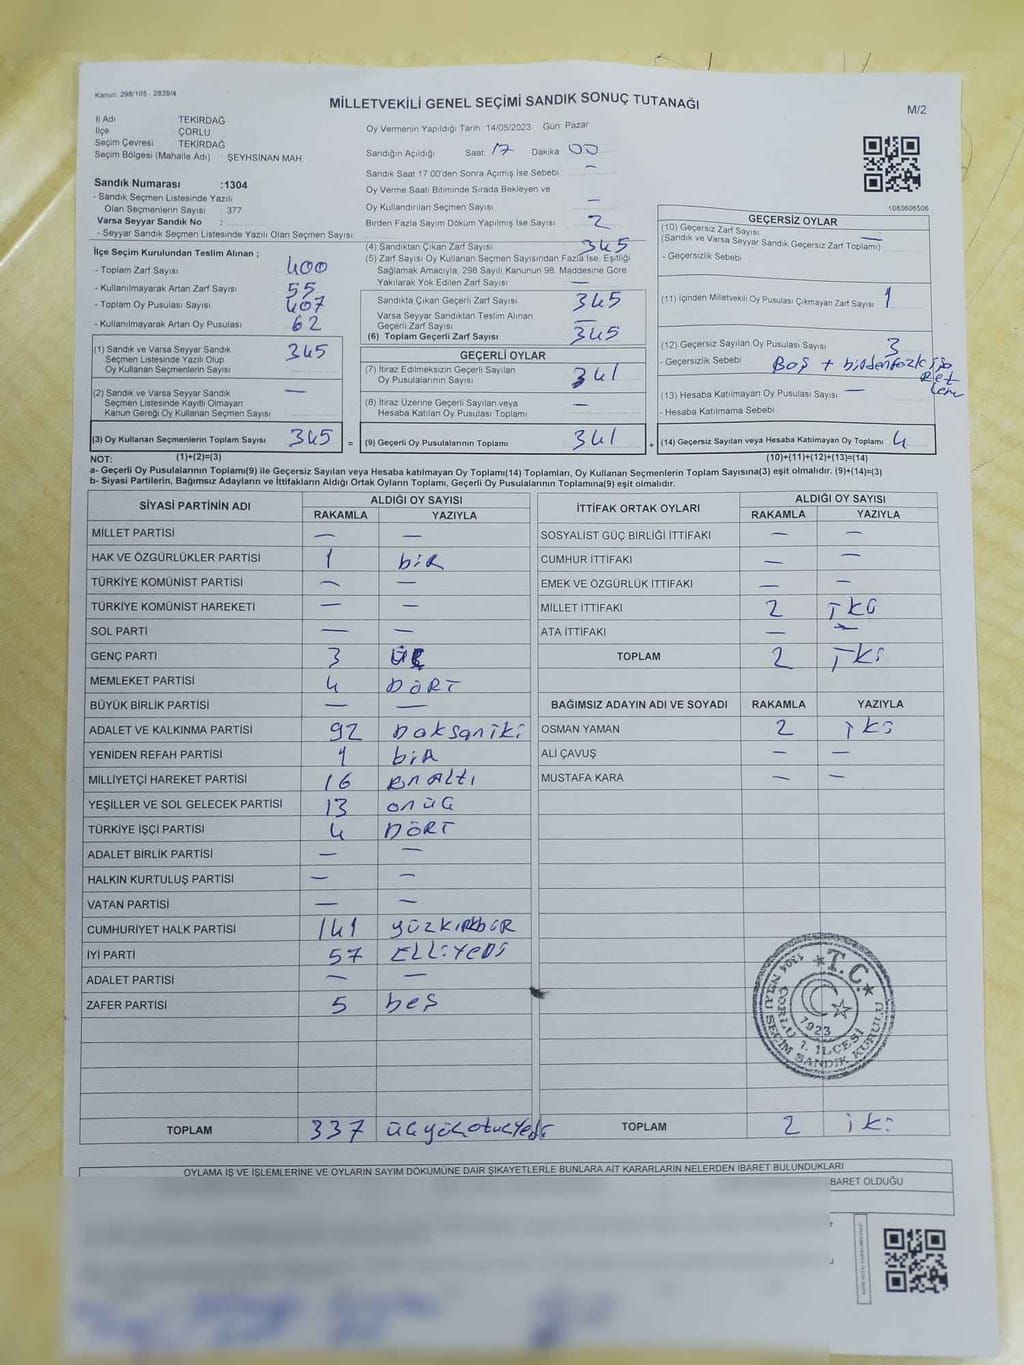 Kanun. 298/105 - 2839/4
MİLLETVEKİLİ GENEL SEÇİMİ SANDIK SONUÇ TUTANAĞI
M/2
İl Adı TEKİRDAĞ
İlçe ÇORLU
Seçim Çevresi TEKİRDAĞ
Seçim Bölgesi (Mahalle Adı) ŞEYHSİNAN MAH.
Oy Vermenin Yapıldığı Tarih 14/05/2023 Gün: Pazar
Sandığın Açıldığı Saat: 17 Dakika: 00
Sandık Saat 17:00'den Sonra Açımış İse Sebebi: —
Oy Verme Saati Bitiminde Sırada Bekleyen ve
Oy Kullandırılan Seçmen Sayısı —
Birden Fazla Sayım Döküm Yapılmış İse Sayısı 2
1083606506
Sandık Numarası :1304
- Sandık Seçmen Listesinde Yazılı
Olan Seçmenlerin Sayısı : 377
Varsa Seyyar Sandık No :
- Seyyar Sandık Seçmen Listesinde Yazılı Olan Seçmen Sayısı:
İlçe Seçim Kurulundan Teslim Alınan ;
- Toplam Zarf Sayısı 400
- Kullanılmayarak Artan Zarf Sayısı 55
- Toplam Oy Pusulası Sayısı 407
- Kullanılmayarak Artan Oy Pusulası 62
(1) Sandık ve Varsa Seyyar Sandık
Seçmen Listesinde Yazılı Olup
Oy Kullanan Seçmenlerin Sayısı 345
(2) Sandık ve Varsa Seyyar Sandık
Seçmen Listesinde Kayıtlı Olmayan
Kanun Gereği Oy Kullanan Seçmen Sayısı —
(3) Oy Kullanan Seçmenlerin Toplam Sayısı 345 =
(1)+(2)=(3)
(4) Sandıktan Çıkan Zarf Sayısı 345
(5) Zarf Sayısı Oy Kullanan Seçmen Sayısından Fazla İse, Eşitliği
Sağlamak Amacıyla, 298 Sayılı Kanunun 98. Maddesine Göre
Yakılarak Yok Edilen Zarf Sayısı —
Sandıkta Çıkan Geçerli Zarf Sayısı 345
Varsa Seyyar Sandıktan Teslim Alınan
Geçerli Zarf Sayısı —
(6) Toplam Geçerli Zarf Sayısı 345
GEÇERLİ OYLAR
(7) İtiraz Edilmeksizin Geçerli Sayılan
Oy Pusulalarının Sayısı 341
(8) İtiraz Üzerine Geçerli Sayılan veya
Hesaba Katılan Oy Pusulası Toplamı —
(9) Geçerli Oy Pusulalarının Toplamı 341 +
GEÇERSİZ OYLAR
(10) Geçersiz Zarf Sayısı
(Sandık ve Varsa Seyyar Sandık Geçersiz Zarf Toplamı) —
- Geçersizlik Sebebi
(11) İçinden Milletvekili Oy Pusulası Çıkmayan Zarf Sayısı 1
(12) Geçersiz Sayılan Oy Pusulası Sayısı 3
- Geçersizlik Sebebi Boş + birden fazla işa
Ret
leme
(13) Hesaba Katılmayan Oy Pusulası Sayısı —
- Hesaba Katılmama Sebebi
(14) Geçersiz Sayılan veya Hesaba Katılmayan Oy Toplamı 4
(10)+(11)+(12)+(13)=(14)
NOT:
a- Geçerli Oy Pusulalarının Toplamı(9) ile Geçersiz Sayılan veya Hesaba katılmayan Oy Toplamı(14) Toplamları, Oy Kullanan Seçmenlerin Toplam Sayısına(3) eşit olmalıdır. (9)+(14)=(3)
b- Siyasi Partilerin, Bağımsız Adayların ve İttifakların Aldığı Ortak Oyların Toplamı, Geçerli Oy Pusulalarının Toplamına(9) eşit olmalıdır.
SİYASİ PARTİNİN ADI ALDIĞI OY SAYISI
RAKAMLA YAZIYLA
MİLLET PARTİSİ — —
HAK VE ÖZGÜRLÜKLER PARTİSİ 1 biR
TÜRKİYE KOMÜNİST PARTİSİ — —
TÜRKİYE KOMÜNİST HAREKETİ — —
SOL PARTİ — —
GENÇ PARTİ 3 üÇ
MEMLEKET PARTİSİ 4 DÖRT
BÜYÜK BİRLİK PARTİSİ — —
ADALET VE KALKINMA PARTİSİ 92 Doksaniki
YENİDEN REFAH PARTİSİ 1 biR
MİLLİYETÇİ HAREKET PARTİSİ 16 onAltı
YEŞİLLER VE SOL GELECEK PARTİSİ 13 onüç
TÜRKİYE İŞÇİ PARTİSİ 4 DÖRT
ADALET BİRLİK PARTİSİ — —
HALKIN KURTULUŞ PARTİSİ — —
VATAN PARTİSİ — —
CUMHURİYET HALK PARTİSİ 141 yüzkırkbir
İYİ PARTİ 57 ELLİYEDİ
ADALET PARTİSİ — —
ZAFER PARTİSİ 5 beş
TOPLAM 337 üçyüzotuzYedi
İTTİFAK ORTAK OYLARI ALDIĞI OY SAYISI
RAKAMLA YAZIYLA
SOSYALİST GÜÇ BİRLİĞİ İTTİFAKI — —
CUMHUR İTTİFAKI — —
EMEK VE ÖZGÜRLÜK İTTİFAKI — —
MİLLET İTTİFAKI 2 İKİ
ATA İTTİFAKI — —
TOPLAM 2 İKİ
BAĞIMSIZ ADAYIN ADI VE SOYADI RAKAMLA YAZIYLA
OSMAN YAMAN 2 İKİ
ALİ ÇAVUŞ — —
MUSTAFA KARA — —
T.C.
1923
ÇORLU 1. İLÇESİ
SANDIK KURULU
TOPLAM 2 iki
OYLAMA İŞ VE İŞLEMLERİNE VE OYLARIN SAYIM DÖKÜMÜNE DAİR ŞİKAYETLERLE BUNLARA AİT KARARLARIN NELERDEN İBARET BULUNDUKLARI
BARET OLDUĞU